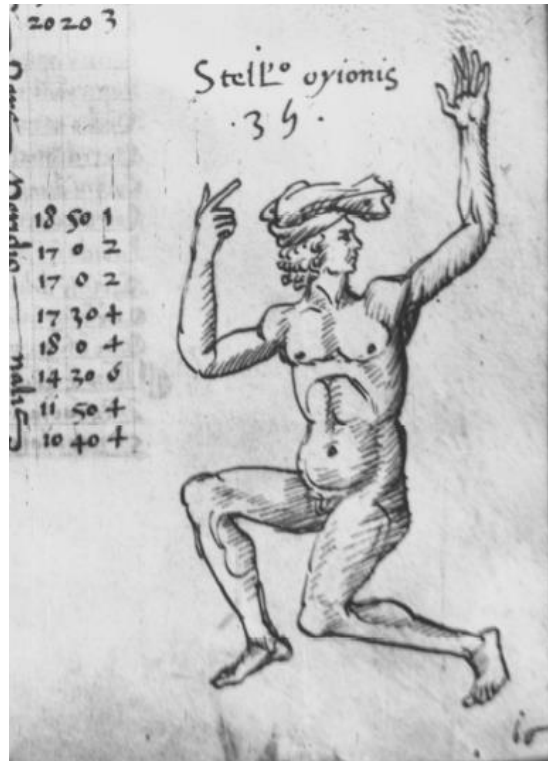 20 20 3
Stell.º oyionis
· 3 ђ ·
18 50 1
17 0 2
17 0 2
17 30 4
18 0 4
14 30 6
11 50 4
10 40 4